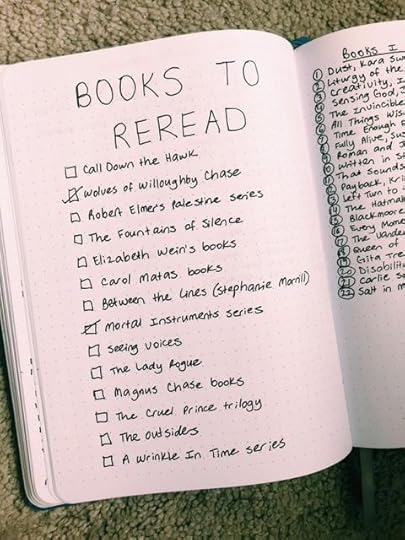 BOOKS TO
REREAD
Call Down the Hawk
Wolves of Willoughby Chase
Robert Elmer's Palestine series
The Fountains of Silence
Elizabeth Wein's books
Carol Matas books
Between the Lines (Stephanie Morrill)
Mortal Instruments series
Seeing Voices
The Lady Rogue
Magnus Chase books
The Cruel Prince trilogy
The Outsiders
A Wrinkle In Time series
BOOKS I
1 Dust, Kara
2 Liturgy of the
3 Creativity,
4 Sensing God,
5 The Invincible
6 All Things
7 Time Enough
8 Fully Alive,
9 Roman and
10 Written in
11 That Sounds
12 Payback,
13 Left Turn to
14 The
15 Blackmoore
16 Every
17 The
18 Queen of
19 Gita
20
21 Carlie
22 Salt in